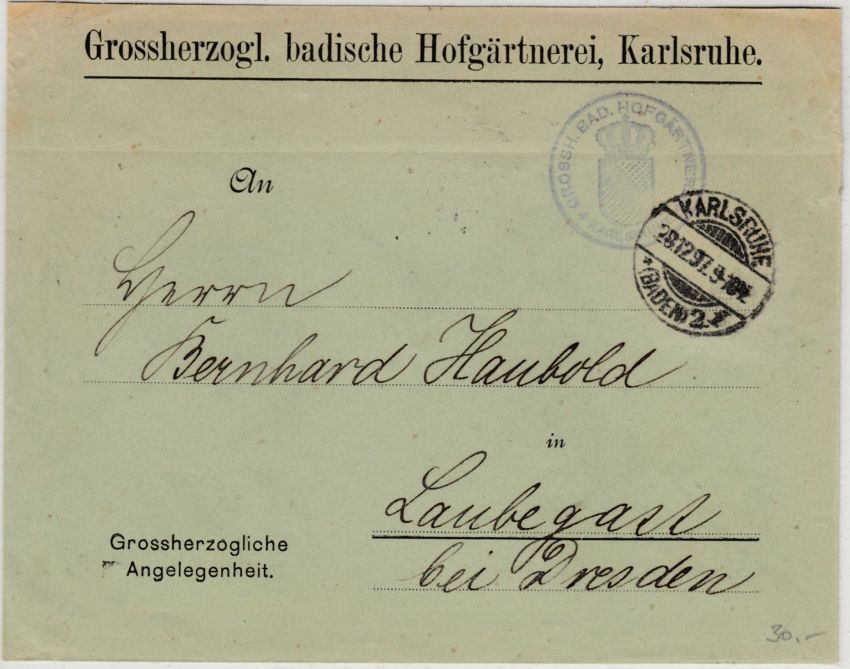 Grossherzogl. badische Hofgärtnerei, Karlsruhe.
GROSSH. BAD. HOFGÄRTNEREI
KARLSRUHE
KARLSRUHE
28.12.97. 9-10V.
*(BADEN) 2.
An
Herrn
Bernhard Haubold
in
Laubegast
bei Dresden
Grossherzogliche
Angelegenheit.
30.-